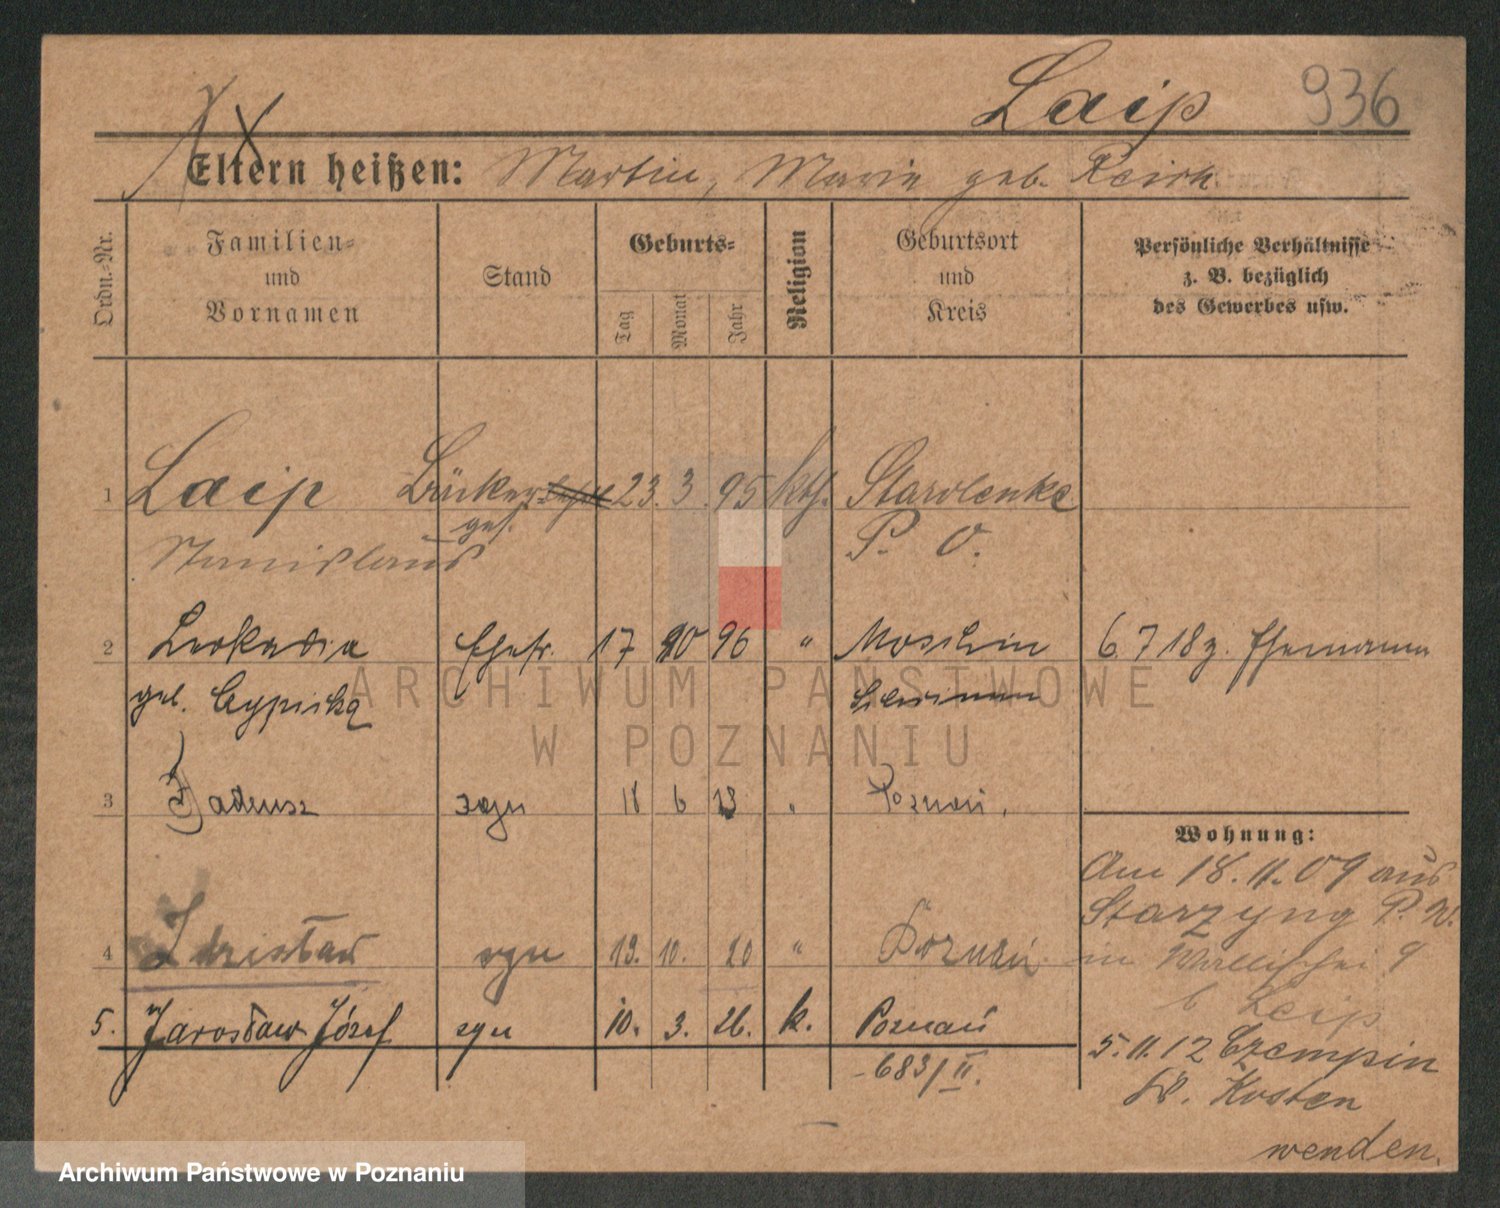 Laip 936
Eltern heißen: Martin, Marie geb. Reich
Ordn.-Nr.
Familien-
und
Vornamen
Stand
Geburts-
Tag
Monat
Jahr
Religion
Geburtsort
und
Kreis
Persönliche Verhältnisse
z. B. bezüglich
des Gewerbes usw.
1 Laip Bäcker 23. 3. 95 kth. Starolenke
ges.
Stanislaus P. O.
2 Leokadia Ehefr. 17 10 96 " Moschin 6.7.18 z. Ehemann
geb. Schrimm
3 Tadeusz syn 18 6 13 " Poznań,
Wohnung:
Am 18.11.09 aus
Starzyny P. W.
4 Zdzisław syn 13. 10. 20 " Poznań in Wallischei 9
b Laip
5. Jarosław Józef syn 10. 3. 26. k. Poznań
5.11.12 Czempin
-683/II.
Kr. Kosten
wenden.
ARCHIWUM PAŃSTWOWE
W POZNANIU
Archiwum Państwowe w Poznaniu